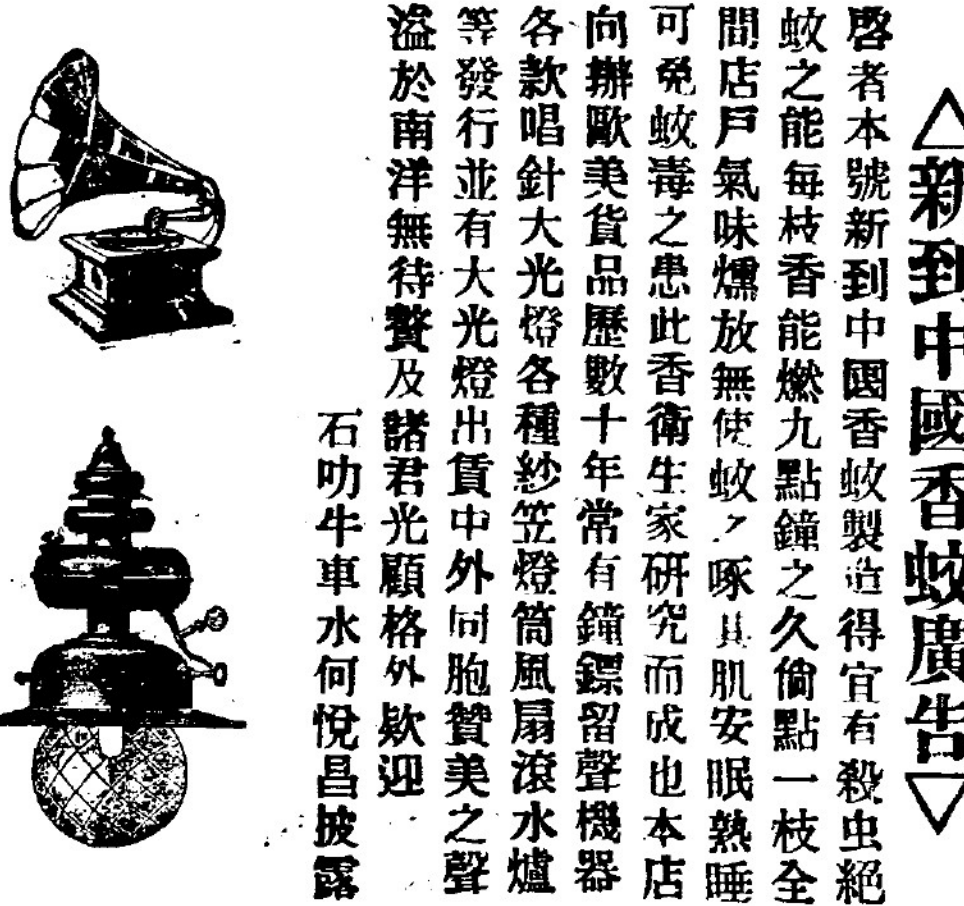 △新到中國香蚊廣告▽
啓者本號新到中國香蚊製造得宜有殺虫絕
蚊之能每枝香能燃九點鐘之久倘點一枝全
間店戶氣味燻放無使蚊之啄其肌安眠熟睡
可免蚊毒之患此香衛生家研究而成也本店
向辦歐美貨品歷數十年常有鐘鏢留聲機器
各款唱針大光燈各種紗笠燈筒風扇滾水爐
等發行並有大光燈出賃中外同胞贊美之聲
溢於南洋無待贅及諸君光顧格外欵迎
石叻牛車水何悅昌披露